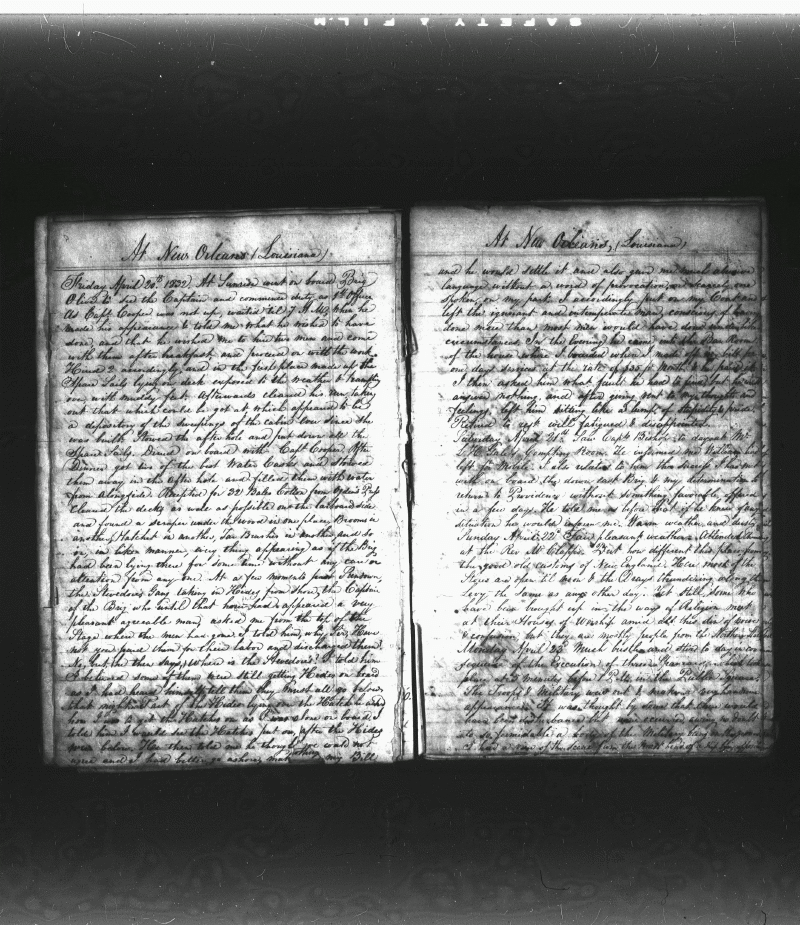 SAFETY FILM
At New Orleans, (Louisiana).
Friday April 20th 1832. At Sunrise went on board Brig
to see the Captain and commence duty as 1st Officer
As Capt Cooper was not up, waited til 7 A.M. when he
made his appearance & told me what he wished to have
done, and that he wished me to hire two men and come
with them after breakfast, and proceed on with the work.
Hired 2 accordingly, and in the first place made up the
Spare Sails lying on deck exposed to the weather &
over with muddy feet. Afterwards cleaned her run, taking
out that which could be got at which appeared to be
a depository of the sweepings of the cabin ever since she
was built. Stowed the after hole and put down all the
Spare Sails. Dined on board with Capt Cooper. After
Dinner got ten of the best Water Casks and Stowed
them away in the After hole and filled them with water
from alongside. Receipted for 22 Bales Cotton from
Cleaned the decks as well as possible on the larboard side
and found a scraper under the wood in one place, Broom in
another, Hatchet in another, Tar Brushes in another and so
on, in like manner, every thing appearing as if the Brig
had been lying there for some time without any care or
attention from any one. At a few moments past Sundown,
the Stevedore's Gang taking in Hides from shore, the Captain
of the Brig, who until that hour had appeared a very
pleasant agreeable man, asked me from the top of the
Stage where the men had gone. I told him, why Sir, Have
not you paid them for their labor and discharged them
No, but he then says, Where is the Stevedore? I told him
I believed some of them were still getting Hides on board
as I had heard himself tell them they must all go below
that night. Part of the Hides lying on the Hatches asked
how I was to get the Hatches on as I was alone on board. I
told him I would see the Hatches put on, after the Hides
were below. He then told me he thought we would not
agree and I had better go ashore, make out my Bill
At New Orleans, (Louisiana)
and he would settle it and also gave me much abusive
language without a word of provocation, and scarcely one
spoken on my part. I accordingly put on my Coat and
left the ignorant and intemperate man, conscious of having
done more than most men would have done under the
circumstances. In the Evening he came into the Bar Room
of the house where I boarded when I made off my bill for
one days services at the rate of $35 pr Month &
I then asked him what fault he had to find, but he
answered nothing, and after giving vent to my thoughts and
feelings, left him sitting like a lump of stupidity &
Retired to rest with fatigued & disappointed
Saturday April 21st. Saw Capt Bishop
Counting Room. He informed me William had
left for Mobile. I also related to him the success I had met
with on board the down east Brig & my determination to
return to Providence without something favorable offered
in a few days. He told me before that if he knew of any
situation he would inform me. Warm weather and
Sunday April 22. Fair pleasant weather. Attended
at the Rev. Mr Clapps. But how different this place from
the good old customs of New England. Here most of the
Stores are open til noon & the Drays thundering along the
Levy the same as any other day. Yet still, some who
have been brought up in the ways of Religion meet
at their Houses of Worship amid all this din of noise
& confusion, but they are mostly people from the Northern States
Monday April 23. Much bustle and stir to day in con-
sequence of the Execution of three
place at 5 minutes before 1 P.M. in the Public Square.
The Troops & Military were out & making a splendid
appearance. It was thought by some that there would
have been disturbance but none occurred owing no doubt
to so formidable a force of the Military being on the ground
I had a view of the scene from the mast head of a ship